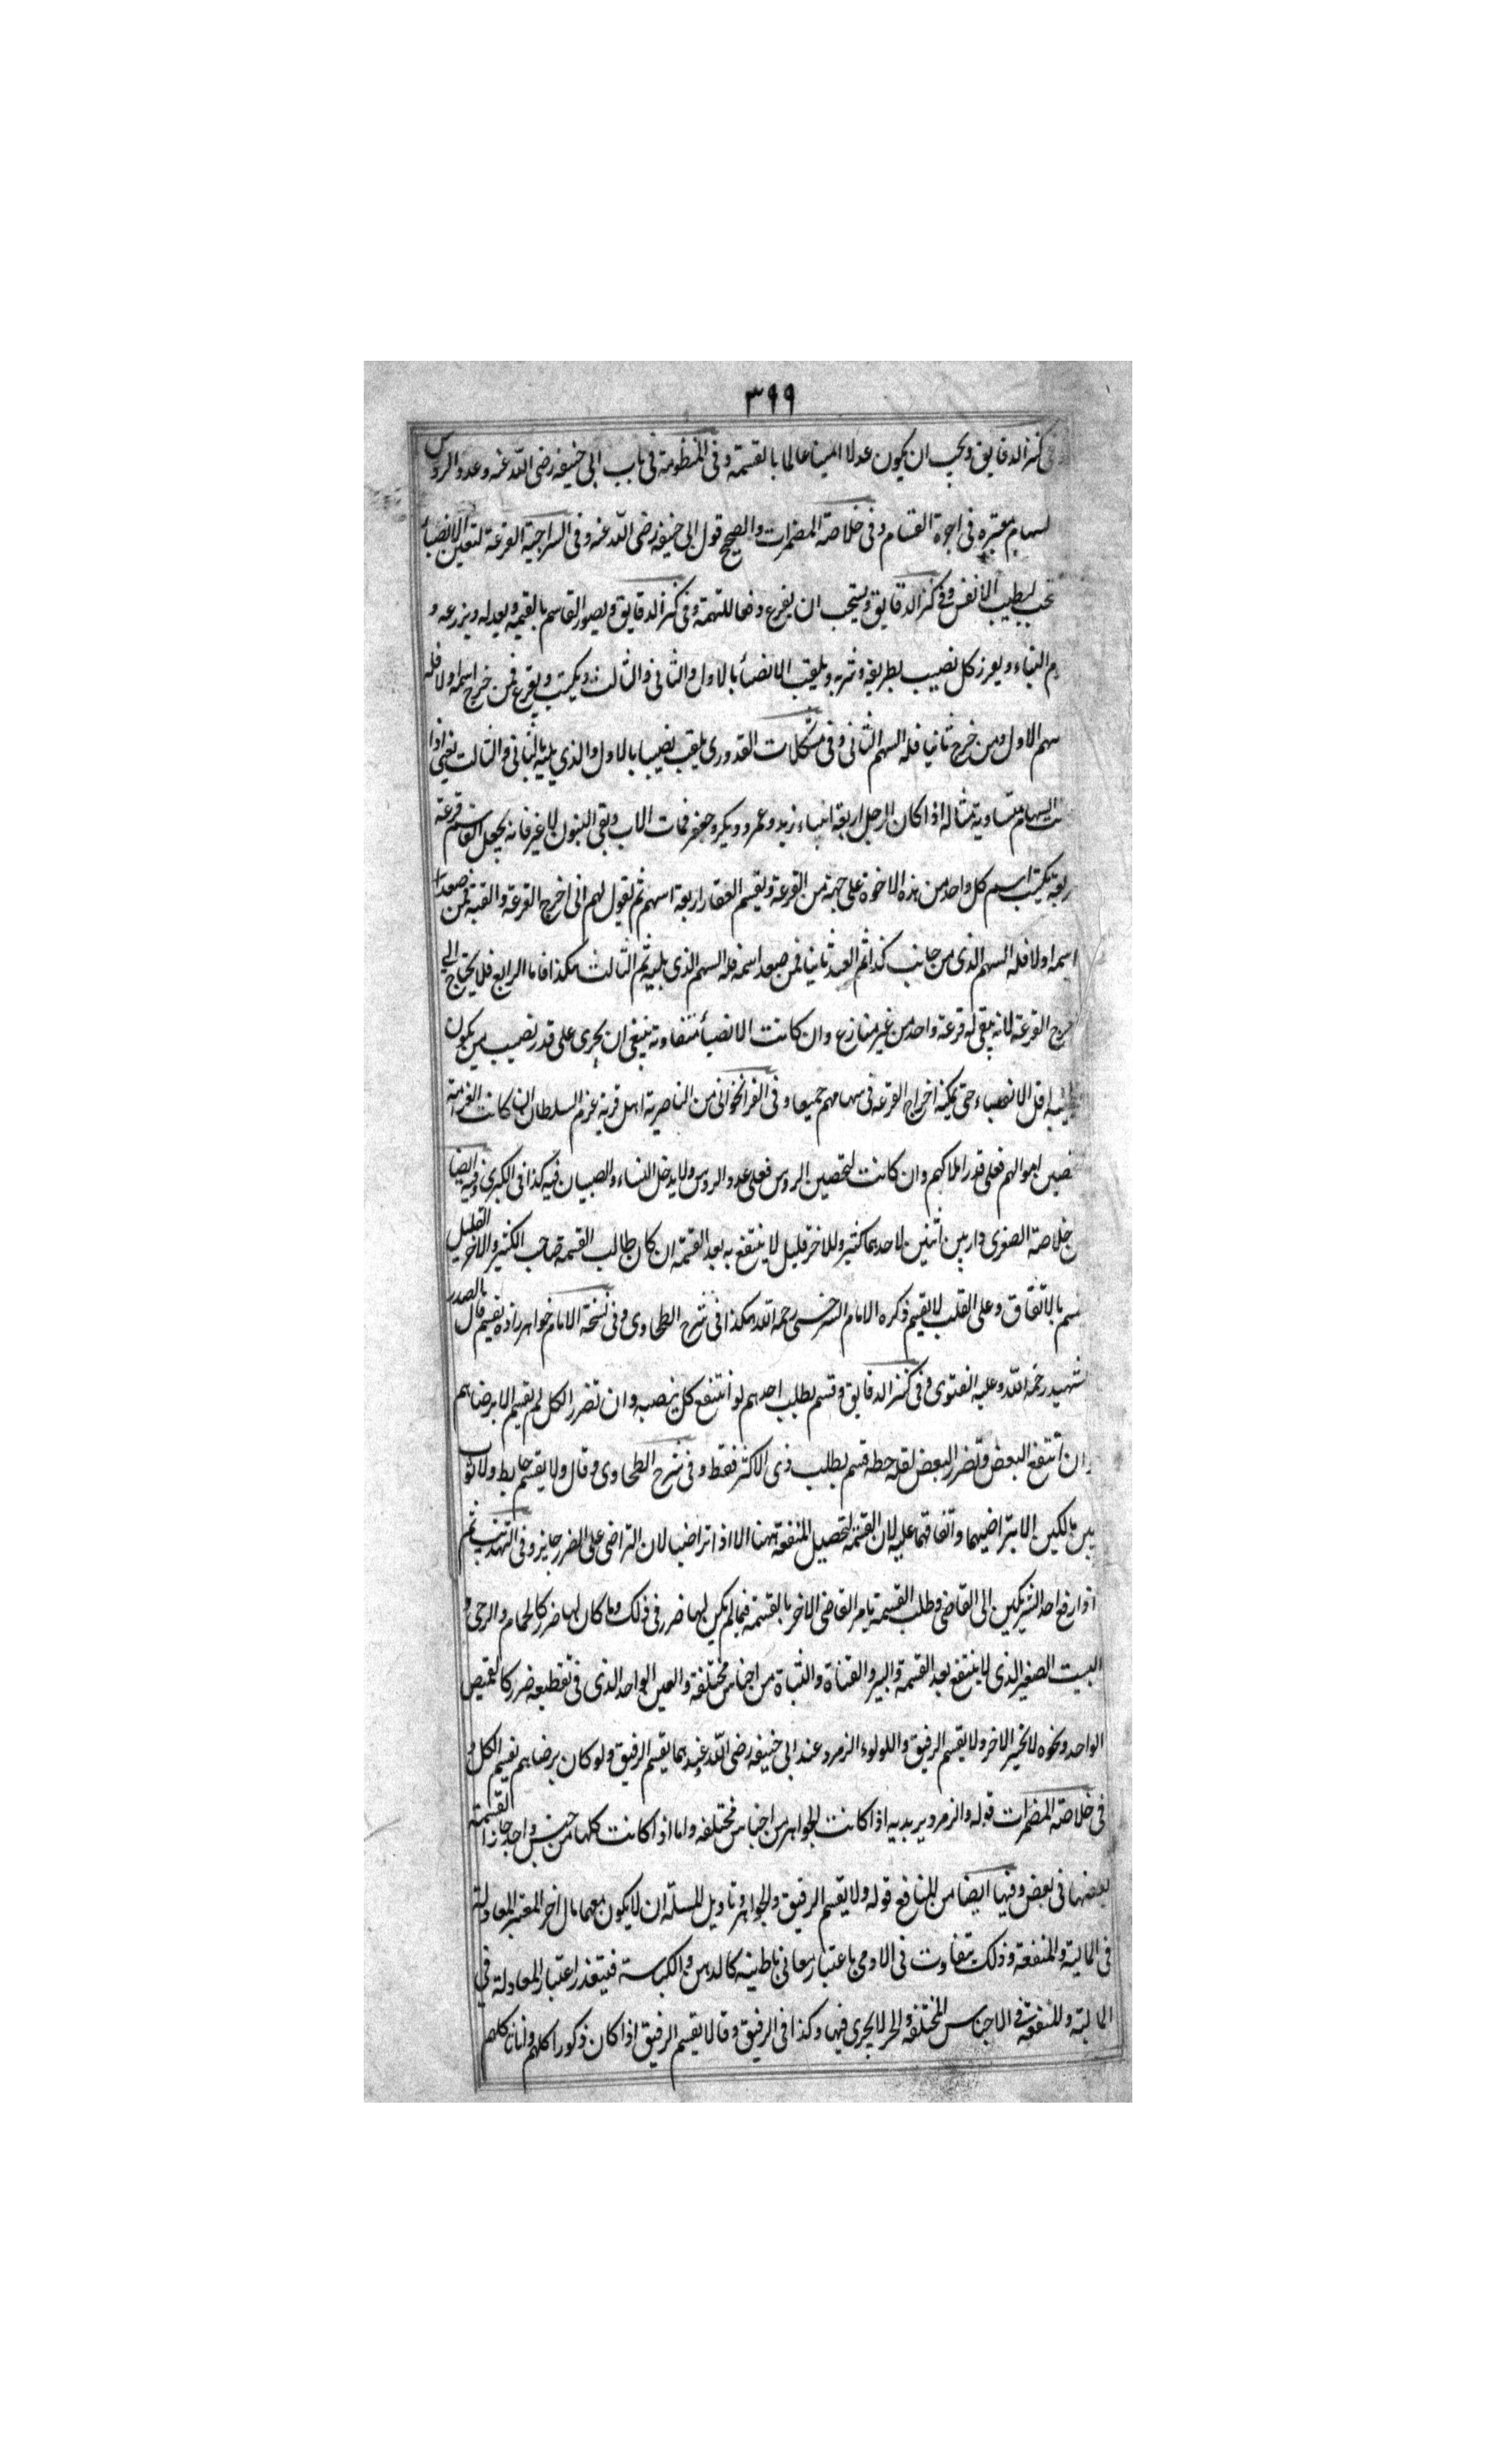 ٣٩٩
فى كنز الدقايق ويجب ان يكون عدلا امينا عالما بالقسمة وفى المنظومة فى باب ابى حنيفه رضى الله عنه وعدد الروس
لسهام معتبره فى اجرة القسام وفى خلاصة المضمرات والصحيح قول ابى حنيفه رضى الله عنه وفى السراجية القرعة لتعين الانصبأ
تحب لبطيب الانفس وفى كنز الدقايق ويستحب ان يقرع دفعا للتهمة وفى كنز الدقايق ويصور القاسم بالقيمه ويعدله ويزرعه و
م البناء ويعرز كل نصيب بطريقه وشربه ويلقب الانصبأ بالاول والثانى والثالث ويكتب ويقرع فمن خرج اسمه اولا فله
سهم الاول ومن خرج ثانيا فله السهم الثانى وفى مشكلات القدورى يلقب نصيبا بالاول والذي يليه بالثانى والثالث يعنى اذا
نت السهام متساوية مثاله اذا كان لرجل اربعة ابناء زيد وعمرو وبكر وجعفر فمات الاب وبقى البنون لا غير فانه يجعل القاسم قرعة
ربعة يكتب اسم كل واحد من هذه الاخوة على جهة من القرعة ويقسم العقار اربعة اسهم ثم يقول لهم انى اخرج القرعة والقيه فمن صعد
اسمه اولا فله السهم الذى من جانب كذا ثم العبد ثانيا فمن صعد اسمه فله السهم الذى يليه ثم الثالث هكذا فاما الرابع فلا يحتاج الى
خرج القرعة لانه يبقى له قرعة واحد من غير منازع وان كانت الانصبأ متفاوته ينبغى ان يجرى على قدر نصيب من يكون
اقل الانصباء حتى يمكنه اخراج القرعه فى سهامهم جميعا وفى الفرانخوانى من الناصرية اهل قرية غرم السلطان ان كانت الغرامة
تحصين اموالهم فعلى قدر املاكهم وان كانت لتحصين الروس فعلى عدد الروس ولا يدخل النساء والصبيان فيه كذا فى الكبرى وفيه ايضا
خلاصة الصغرى دار بين اثنين لاحدهما كثير وللاخر قليل لا ينتفع به بعد القسمة ان كان طالب القسمة صاحب الكثير والاخر القليل
سم بالاتفاق وعلى القلب لا يقسم ذكره الامام السرخسى رحمه الله هكذا فى شرح الطحاوى وفى نسخة الامام خواهرزاده يقسم قال الصدر
لشهيد رحمه الله وعليه الفتوى وفى كنز الدقايق وقسم بطلب احدهم لو انتفع كل بنصيبه وان تضرر الكل لم يقسم الا برضاهم
ان انتفع البعض وتضرر البعض لقلة حظه قسم بطلب ذى الاكثر فقط وفى شرح الطحاوى وقال ولا يقسم حايط ولا ثوب
بين مالكين الا بتراضيهما واتفاقهما عليه لان القسمة لتحصيل المنفعة ههنا الا اذا تراضيا لان التراضى على الضرر جايز وفى التهذيب ثم
اذا رفع احد الشريكين الى القاضى وطلب القسمة يامر القاضى الاخر بالقسمة فيما لم يكن لهما ضرر فى ذلك وما كان لهما ضرر كالحمام والرحى و
البيت الصغير الذى لا ينتفع بعد القسمة والبير والقناة والثياة من اجناس مختلفة والعين الواحد الذى فى تقطيعه ضرر كالقميص
الواحد ونحوه لا يجبر الاخر ولا يقسم الرقيق واللولوء الزمرد عند ابى حنيفه رضى الله عنه وعندهما يقسم الرقيق ولو كان برضاهم يقسم الكل و
فى خلاصة المضمرات قوله والزمرد يريد به اذا كانت الجواهر من اجناس مختلفه واما اذا كانت كلها من جنس واحد جاز القسمة
بعضها فى بعض وفيها ايضا من المنافع قوله ولا يقسم الرقيق والجواهر وتاويل المسئلة ان لا يكون معهما مال اخر المعتبر المعادلة
فى المالية والمنفعة وذلك يتفاوت فى الادمى باعتبار معانى باطنيه كالدهن والكياسة فيتعذر اعتبار المعادلة فى
المالية والمنفعة فى الاجناس المختلفه والجبر لا يجرى فيها وكذا فى الرقيق وقالا يقسم الرقيق اذا كان ذكورا كلهم واناثا كلهم